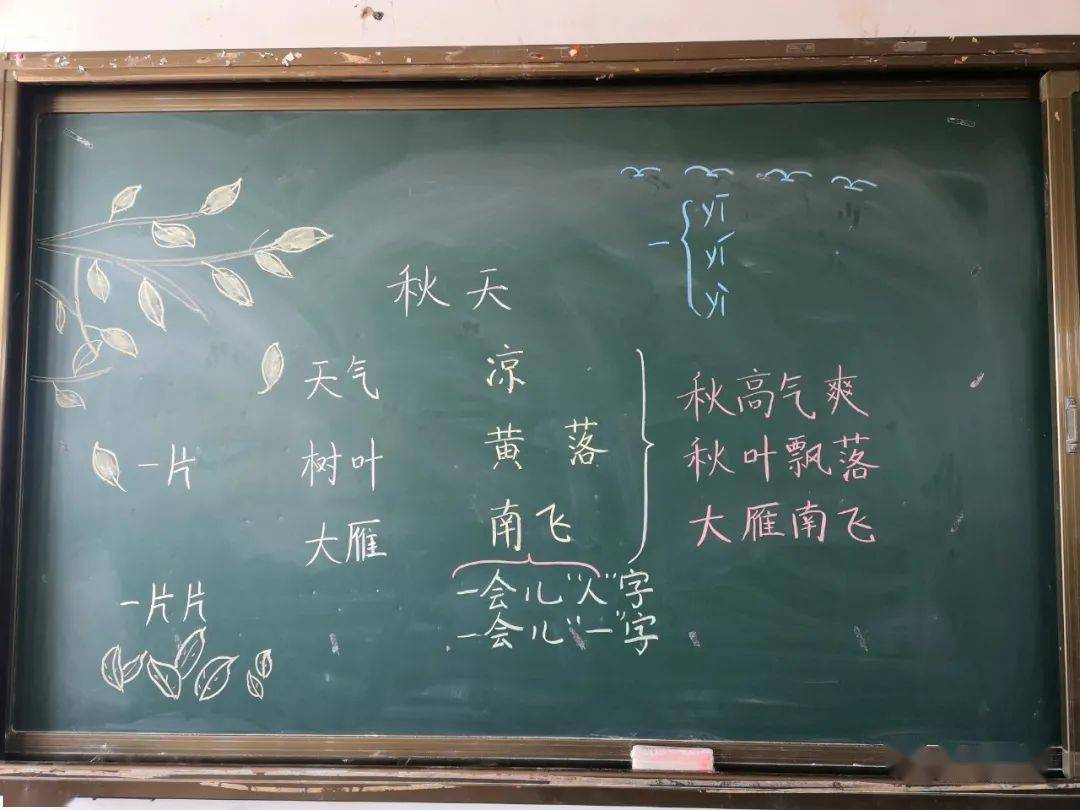 秋天
一 yī
yí
yì
天气 凉
一片 树叶 黄 落
大雁 南飞
秋高气爽
秋叶飘落
大雁南飞
一会儿"人"字
一会儿"一"字
一片片